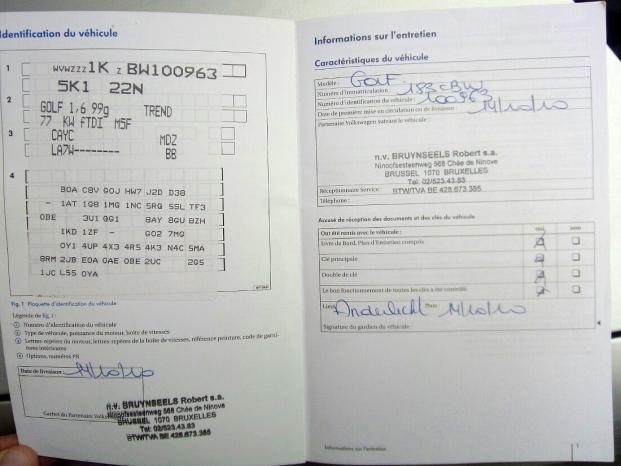 Identification du véhicule
1 WVWZZZ 1K Z BW100963
5K1 22N
2 GOLF 1,6 99g TREND
77 KW fTDI M5F
3 CAYC MDZ
LA7W-------- BB
4
B0A C8V G0J HW7 J2D D38
- 1AT 1G8 1MG 1NC 5RG 5SL TF3
0BE 3U1 0G1 8AY 8GU 8ZH
1KD 1ZF - G02 7MG
0Y1 4UP 4X3 4R5 4K3 N4C 5MA
8RM 2JB E0A 0AE 0BE 2UC 2G5
1JC L55 0YA
Fig. 1 Plaquette d'identification du véhicule
Légende de fig. 1 :
1 Numéro d'identification du véhicule
2 Type de véhicule, puissance du moteur, boîte de vitesses
3 Lettres-repères du moteur, lettres-repères de la boîte de vitesses, référence peinture, code de garnitures intérieures
4 Options, numéros PR
Date de livraison :
Cachet du Partenaire Volkswagen
n.v. BRUYNSEELS Robert s.a.
Ninoofsesteenweg 568 Chée de Ninove
BRUSSEL 1070 BRUXELLES
Tel: 02/523.43.83
BTWTVA BE 428.573.385
Informations sur l'entretien
Caractéristiques du véhicule
Modèle : GOLF
Numéro d'immatriculation : 183 CBW
Numéro d'identification du véhicule : 100963
Date de première mise en circulation ou de livraison :
Partenaire Volkswagen suivant le véhicule :
n.v. BRUYNSEELS Robert s.a.
Ninoofsesteenweg 568 Chée de Ninove
BRUSSEL 1070 BRUXELLES
Tel: 02/523.43.83
BTWTVA BE 428.573.385
Réceptionnaire Service :
Téléphone :
Accusé de réception des documents et des clés du véhicule
Ont été remis avec le véhicule : oui non
Livre de Bord, Plan d'Entretien compris
Clé principale
Double de clé
Le bon fonctionnement de toutes les clés a été contrôlé.
Lieu Anderlecht Date
Signature du gardien du véhicule
Informations sur l'entretien 1